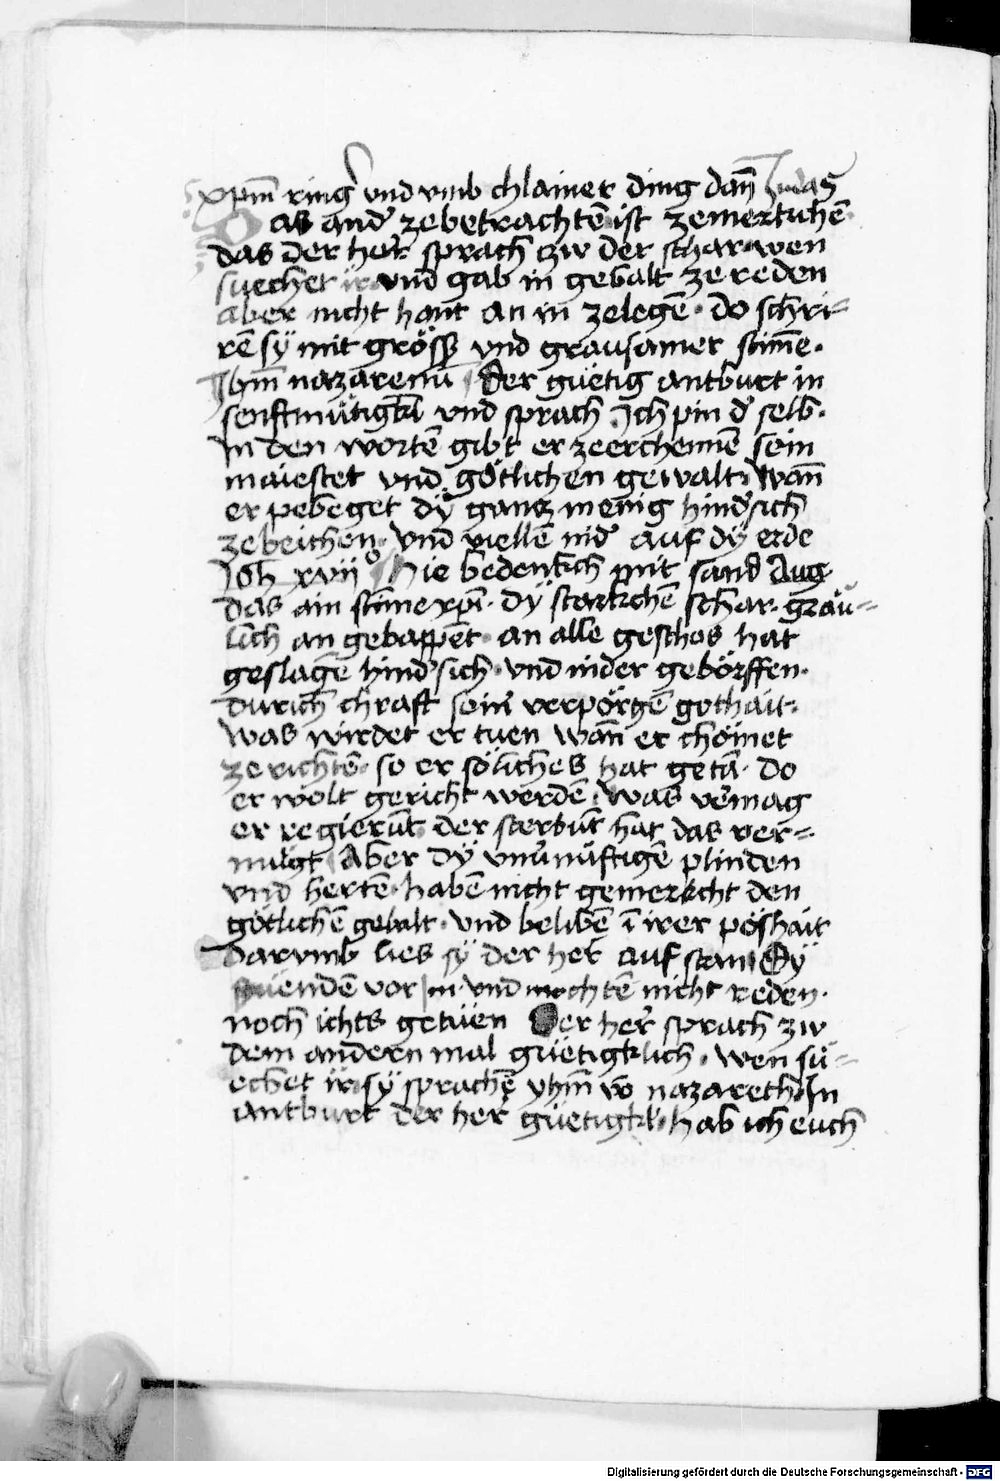 xpm̄ ring' vnd vmb chlainer ding dan̄ Judas
Das and' zebetrachtē ist zemerkchē
das der her sprach zw der schar wen
suechet ir vnd gab in gebalt ze reden
aber nicht hant an in zelegē · do schri=
rē sÿ mit gröss' vnd grausamer stim̄e ·
Jhm̄ nazarenū Der güetig antburt in
senftmütigkl vnd sprach Ich pin d' selb ·
In den wortē gibt er zeerchennē sein
maiestet vnd götlichen gewalt · wan̄
er pebeget dÿ gancz menig hind'sich
zebeichen · vnd viellē nid' auf dÿ erde
Joh xviij° Hie bedenkch mit sand Aug
das ain stim̄e xp̄i · dÿ starkchē schar · gräu=
lich an gebappēt · an alle geschos hat
geslagē hind'sich · vnd nider gebörffen ·
durich chraft sein' verpörgē gothait ·
was wirdet er tuen wan̄ er chömet
ze richtē · so er söliches hat getā · do
er wolt gericht werdē · was v'mag
er regierūt der sterbūt hat das ver=
mügt Aber dÿ vnu'nüftigē plinden
vnd hertē · habē nicht gemerkcht den
götlichē gebalt · vnd belibē ī irer pöshait
darvmb lies sÿ der her auf stan Dÿ
stüendē vor im · vnd mochtē nicht reden ·
noch ichts getüen Der her sprach zw
dem andern mal güetigklich · wen sü=
echet ir · sÿ sprachē yhm̄ vō nazareth · In
antburt der her güetigkl · hab ich euch
Digitalisierung gefördert durch die Deutsche Forschungsgemeinschaft - DFG